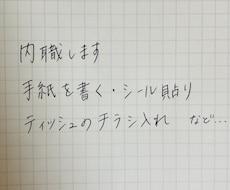 内職します
手紙を書く・シール貼り
ティッシュのチラシ入れ など…